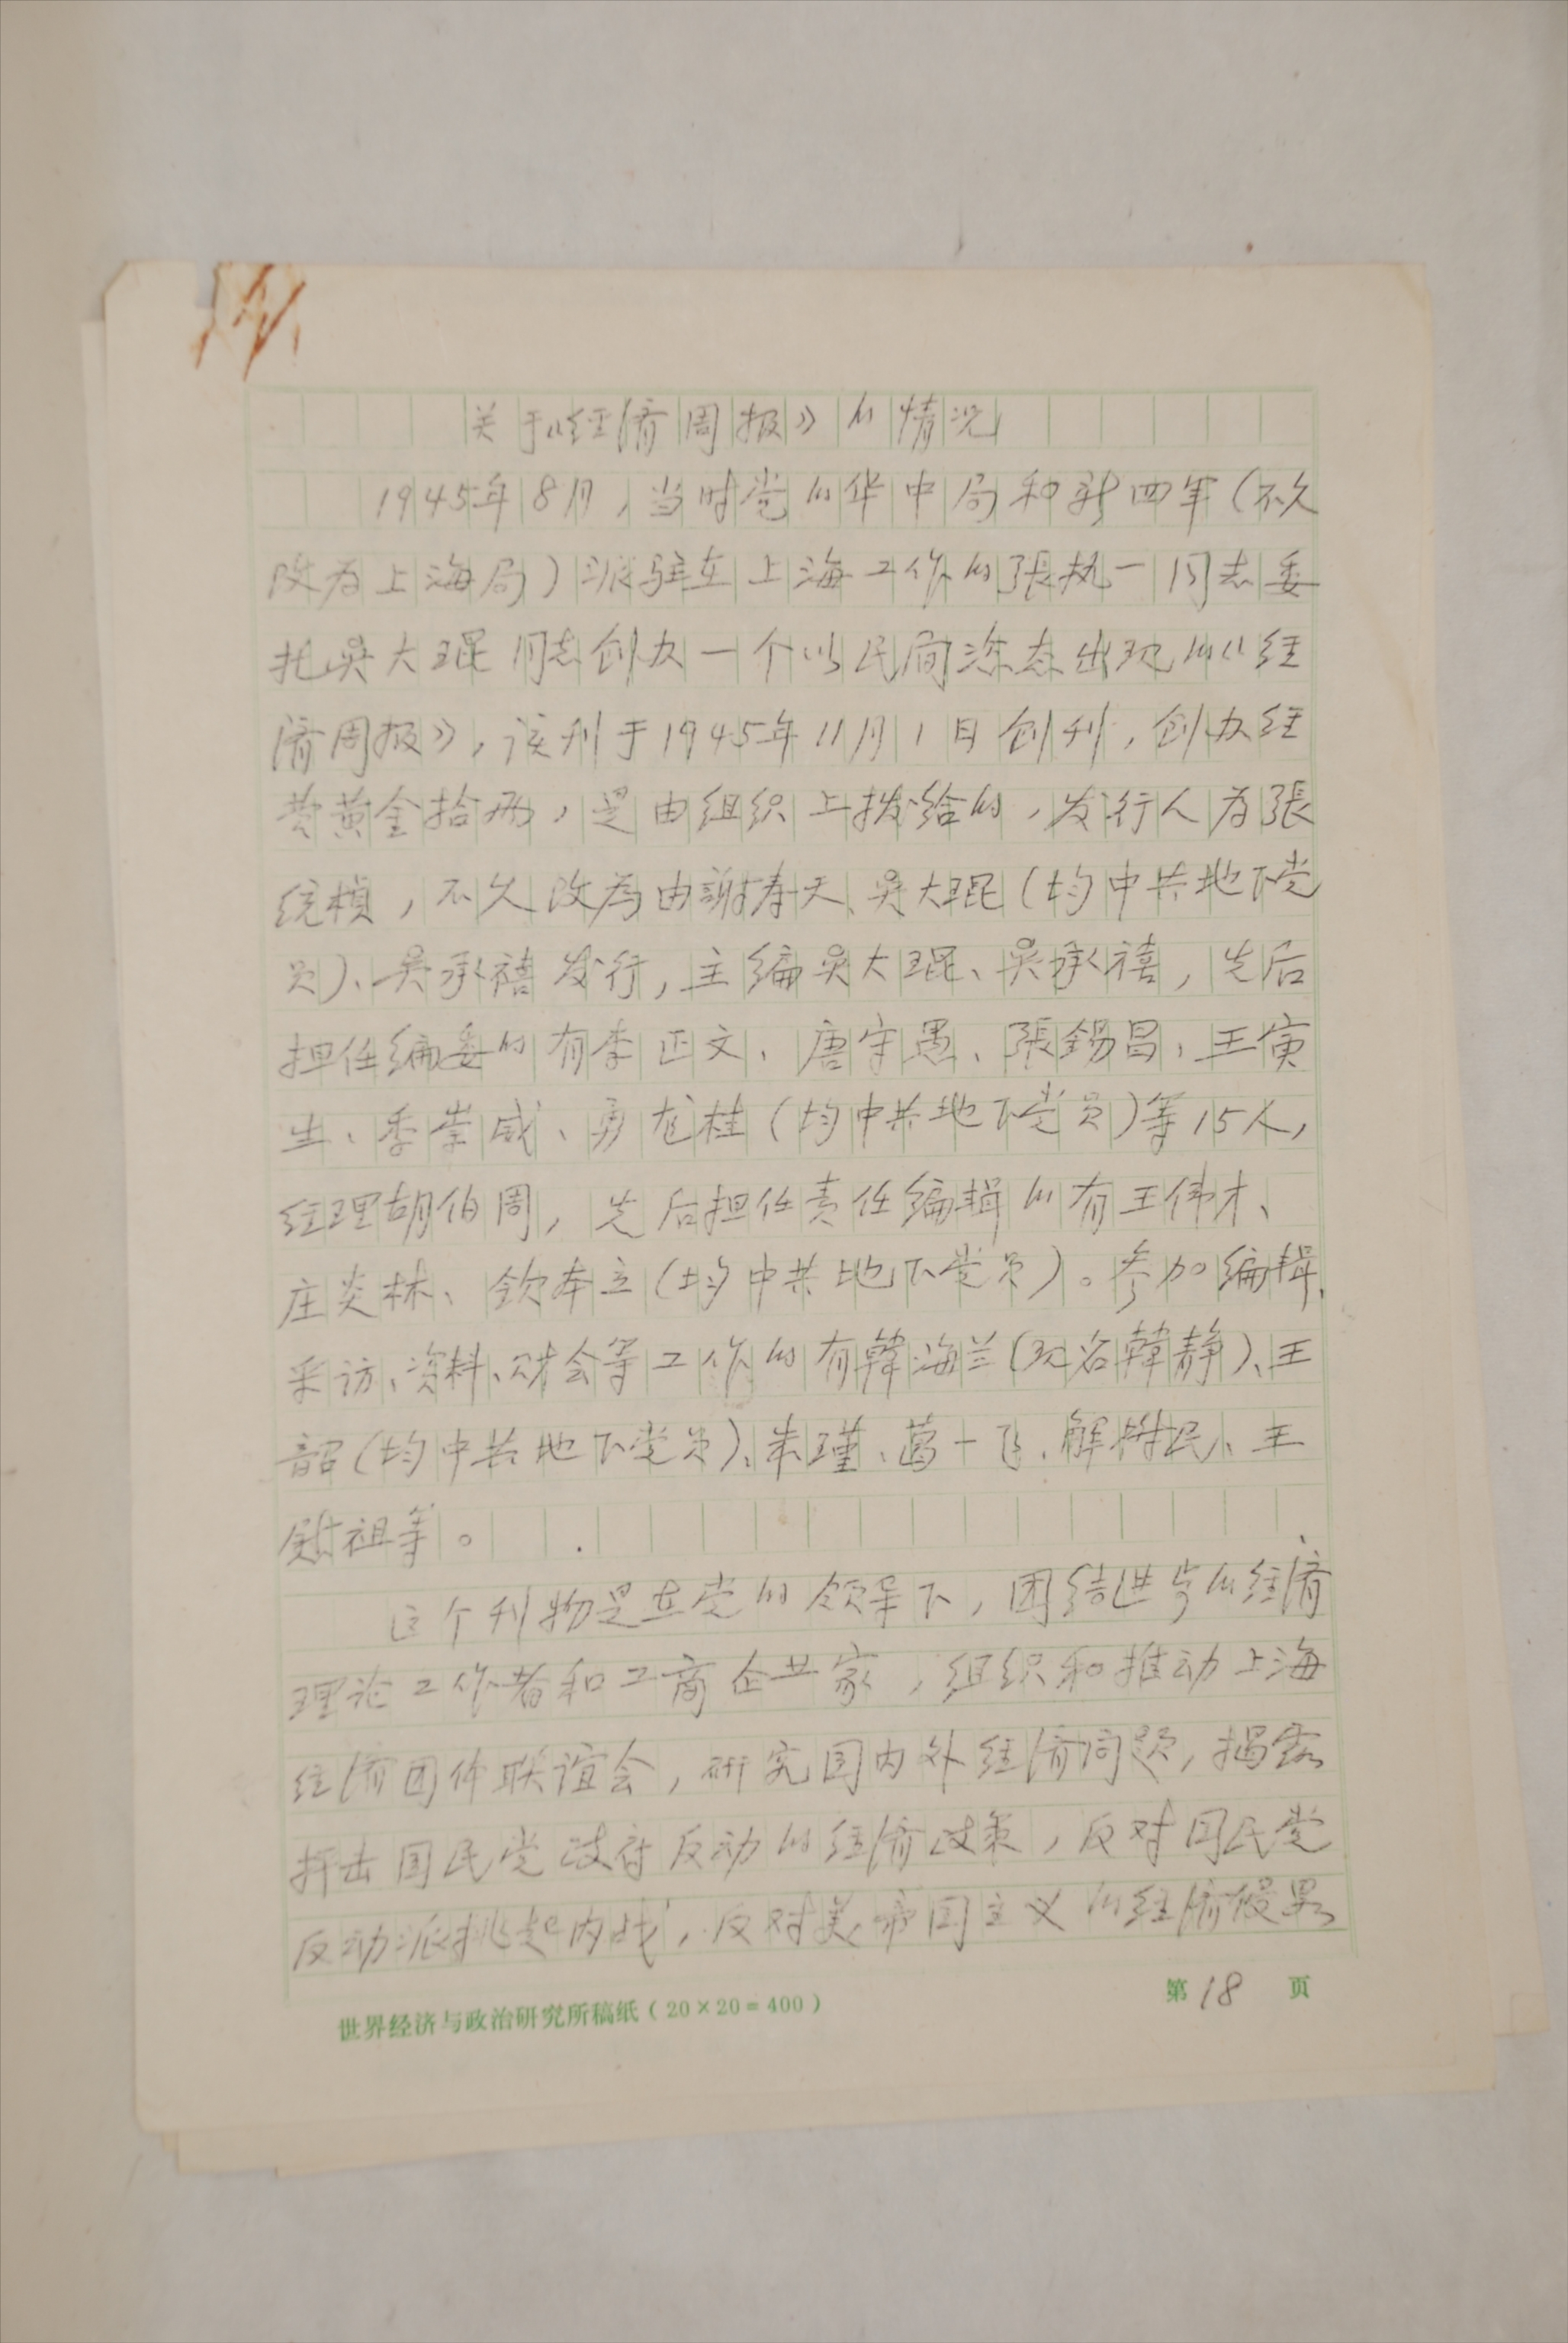 关于《经济周报》的情况
1945年8月，当时党的华中局和新四军（不久
改为上海局）派驻在上海工作的張执一同志委
托吳大琨同志创办一个以民间形态出现的《经
济周报》，该刊于1945年11月1日创刊，创办经
费黄金拾两，是由组织上拨给的，发行人为張
统楨，不久改為由謝寿天、吳大琨（均中共地下党
员）、吴承禧发行，主编吴大琨、吴承禧，先后
担任编委的有李正文、唐守愚、張錫昌、王寅
生、季崇威、勇龙桂（均中共地下党员）等15人，
经理胡伯周，先后担任责任编辑的有王伟才、
庄炎林、钦本立（均中共地下党员）。参加编辑、
采访、资料、财会等工作的有韓海兰（现名韓静）、王
韶（均中共地下党员）、朱瑾、葛一飞、解树民、王
慰祖等。
这个刊物是在党的领导下，团结进步的经济
理论工作者和工商企业家，组织和推动上海
经济团体联谊会，研究国内外经济问题，揭露
抨击国民党政府反动的经济政策，反对国民党
反动派挑起内战，反对美帝国主义的经济侵略
世界经济与政治研究所稿纸（20×20=400）
第18页